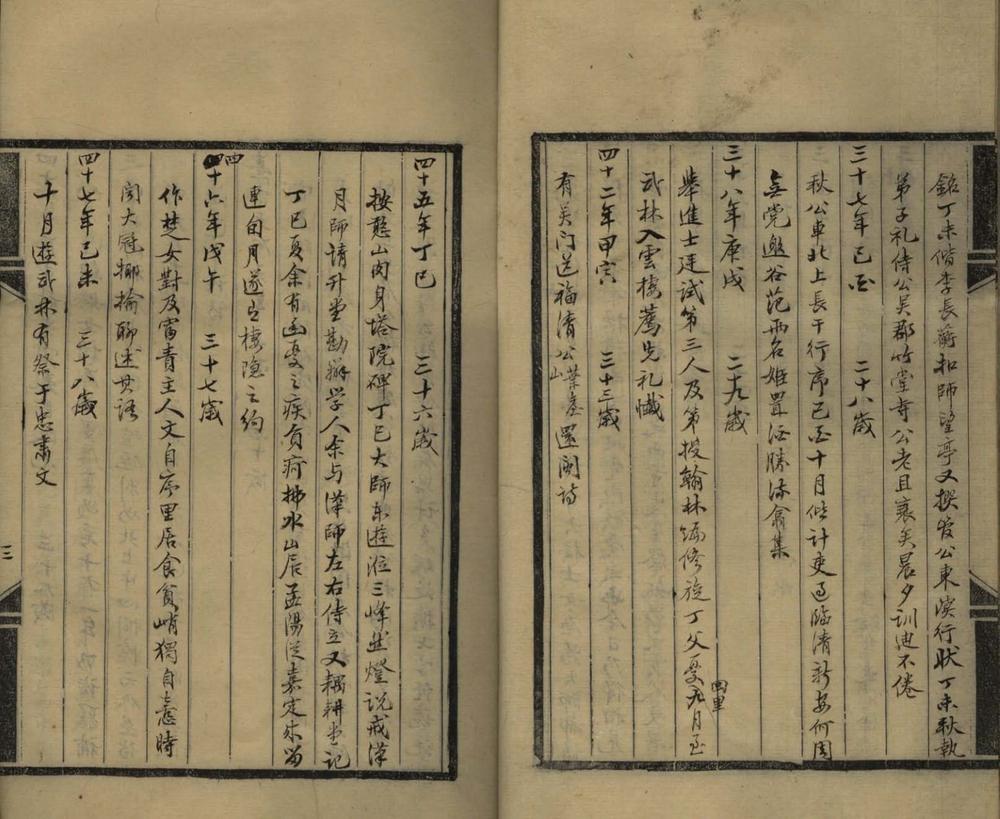 銘丁未偕李長蘅扣師望亭又撰管公東溟行狀丁未秋執
弟子礼侍公吴郡竹堂寺公老且衰矣晨夕訓迪不倦
三十七年己酉 二十八歲
秋公車北上長干行序己酉十月偕計吏过臨清新安何周
無党邀谷范兩名姬置酒勝流翕集
三十八年庚戌 二十九歲
舉進士廷試第三人及第授翰林編修旋丁父憂九月至
四里
武林入雲棲薦先礼懺
四十二年甲寅 三十三歲
有吴门送福清公葉臺山還闽詩
四十五年丁巳 三十六歲
按憨山肉身塔院碑丁巳大師东遊涖三峰然燈説戒漢
月師請升堂勘辦学人余与漢師左右侍立又耦耕堂记
丁巳夏余有幽憂之疾負疴拂水山居孟陽從嘉定来留
連旬月遂占棲隐之约
四十六年戊午 三十七歲
作楚女對及富貴主人文自序里居食貧峭獨自憙時
闵大冠揶揄聊述其語
四十七年己未 三十八歲
十月遊武林有祭于忠肅文
三